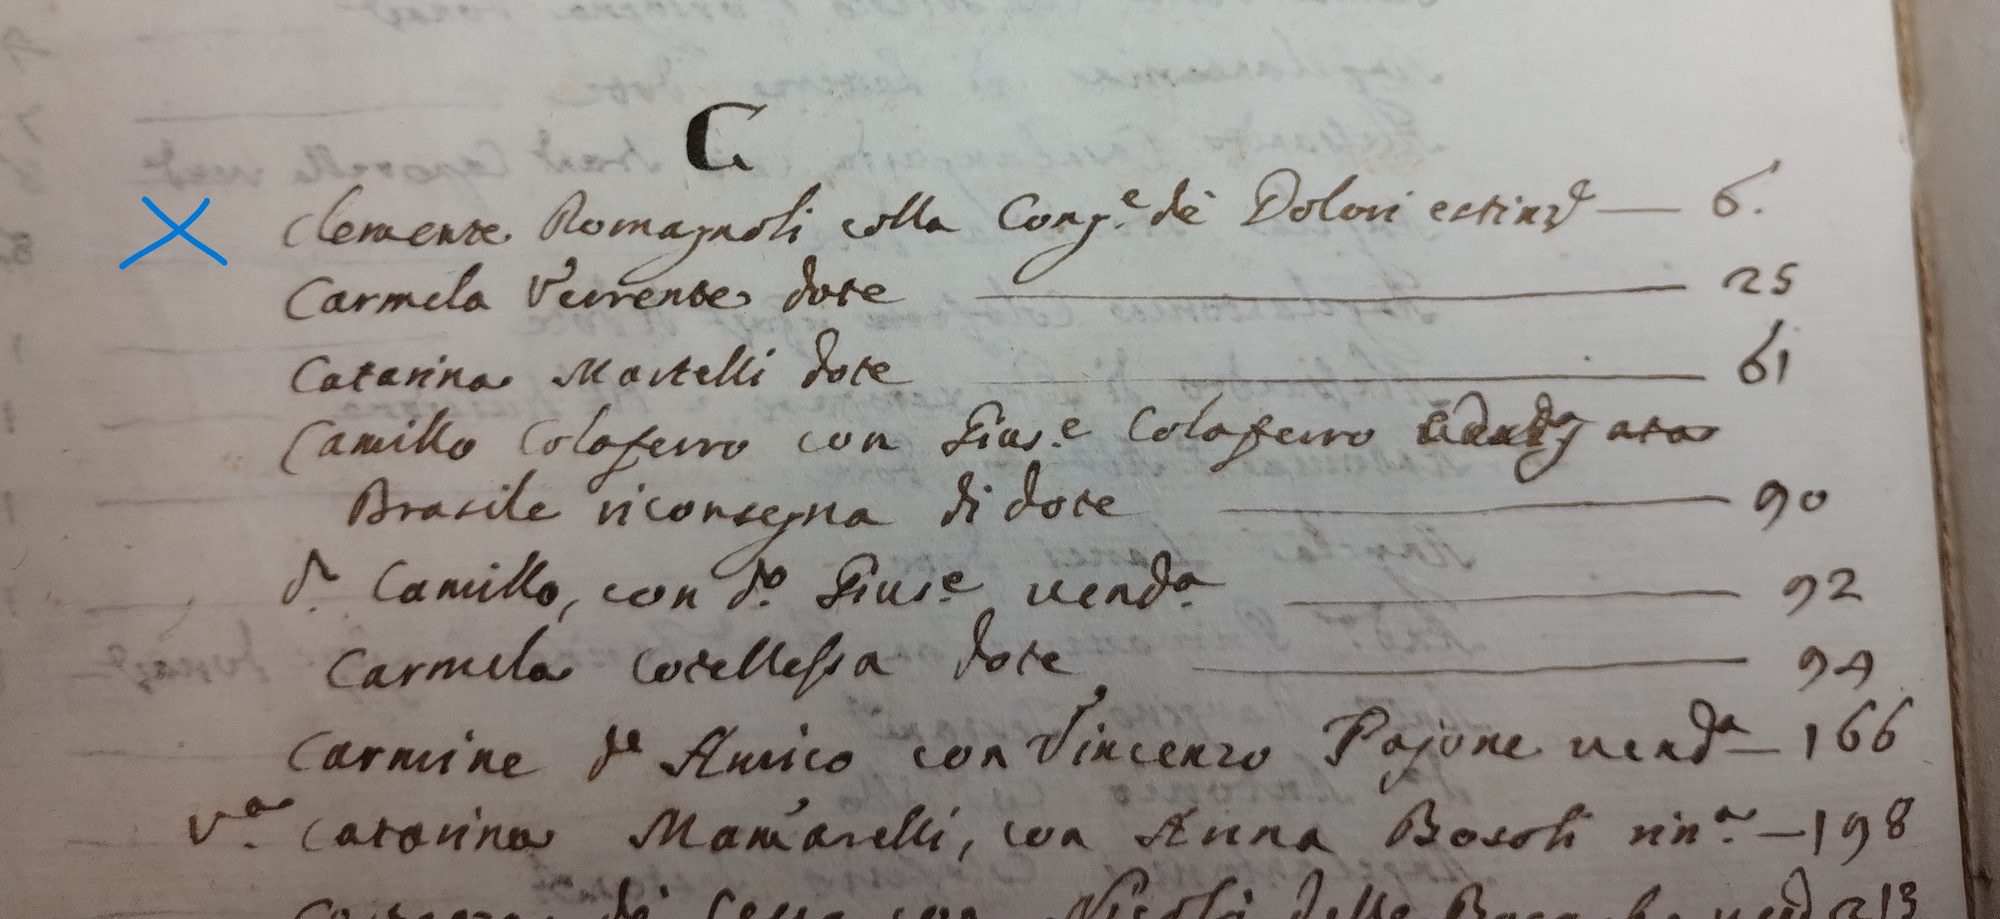 C.
Clemente Romagnoli colla Cong.e dè Dolori estinz.e — 6.
Carmela Verrente dote — 25
Catarina Martelli dote — 61
Camillo Colaferro con Gius.e Colaferro
Brasile riconsegna di dote — 90
d.o Camillo, con d.o Gius.e vend.a — 92
Carmela Cotellessa dote — 94
Carmine d'Amico con Vincenzo Pajone vend.a — 166
V.a Catarina Mam'arelli, con Anna Bosoli rin.a — 198
di con Nicola delle vend 213